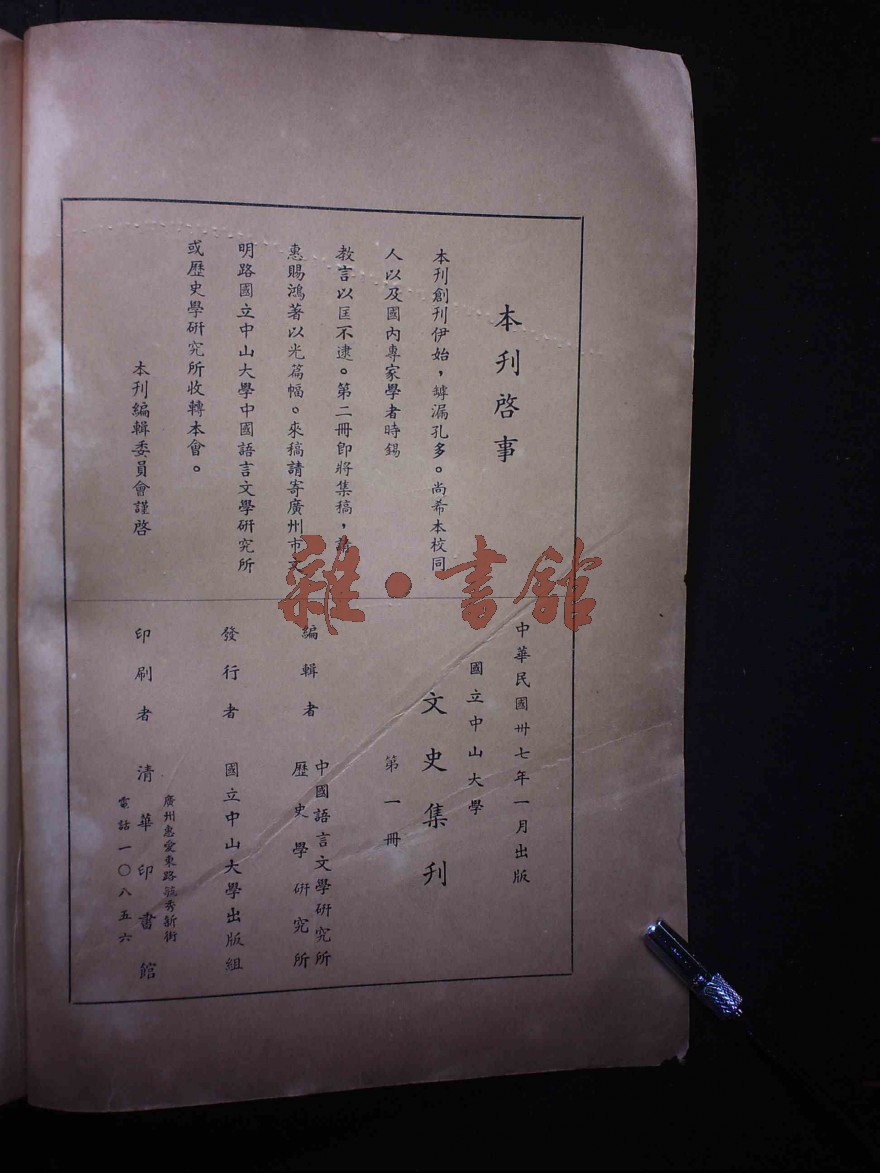 本刊啓事
本刊創刊伊始，罅漏孔多。尚希本校同
人以及國內專家學者時錫
教言以匡不逮。第二冊卽將集稿，請
惠賜鴻著以光篇幅。來稿請寄廣州市文
明路國立中山大學中國語言文學研究所
或歷史學研究所收轉本會。
本刊編輯委員會謹啓
中華民國卅七年一月出版
國立中山大學
文史集刊
第一冊
編輯者
中國語言文學研究所
歷史學研究所
發行者 國立中山大學出版組
印刷者 清華印書館
廣州惠愛東路毓秀新街
電話一〇八五六
雜·書館